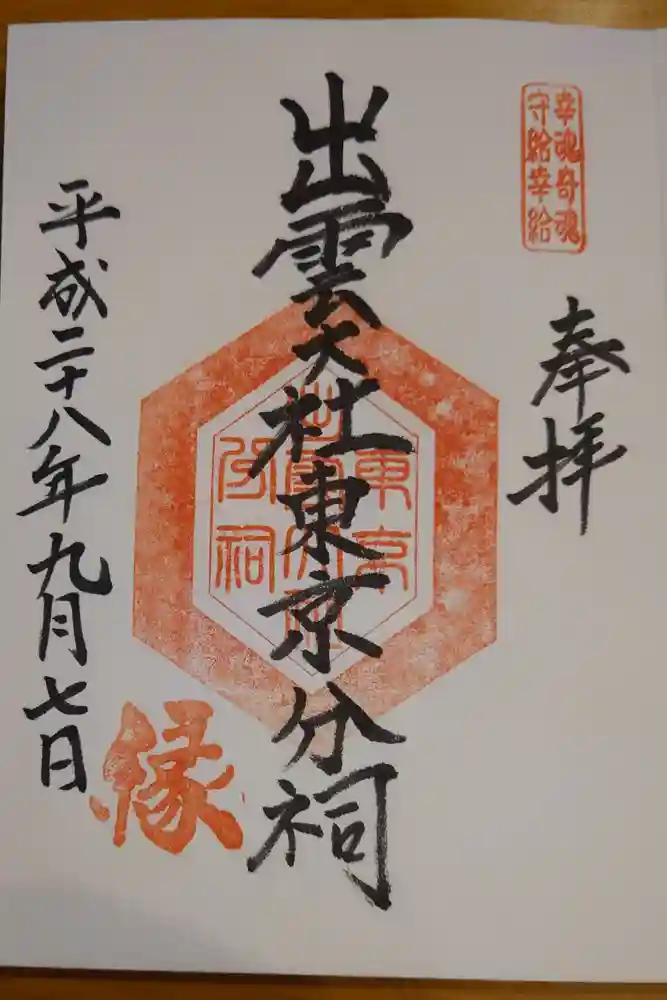 幸魂奇魂
守給幸給
奉拝
出雲大社東京分祠
東京
出雲大社
分祠
平成二十八年九月七日
縁